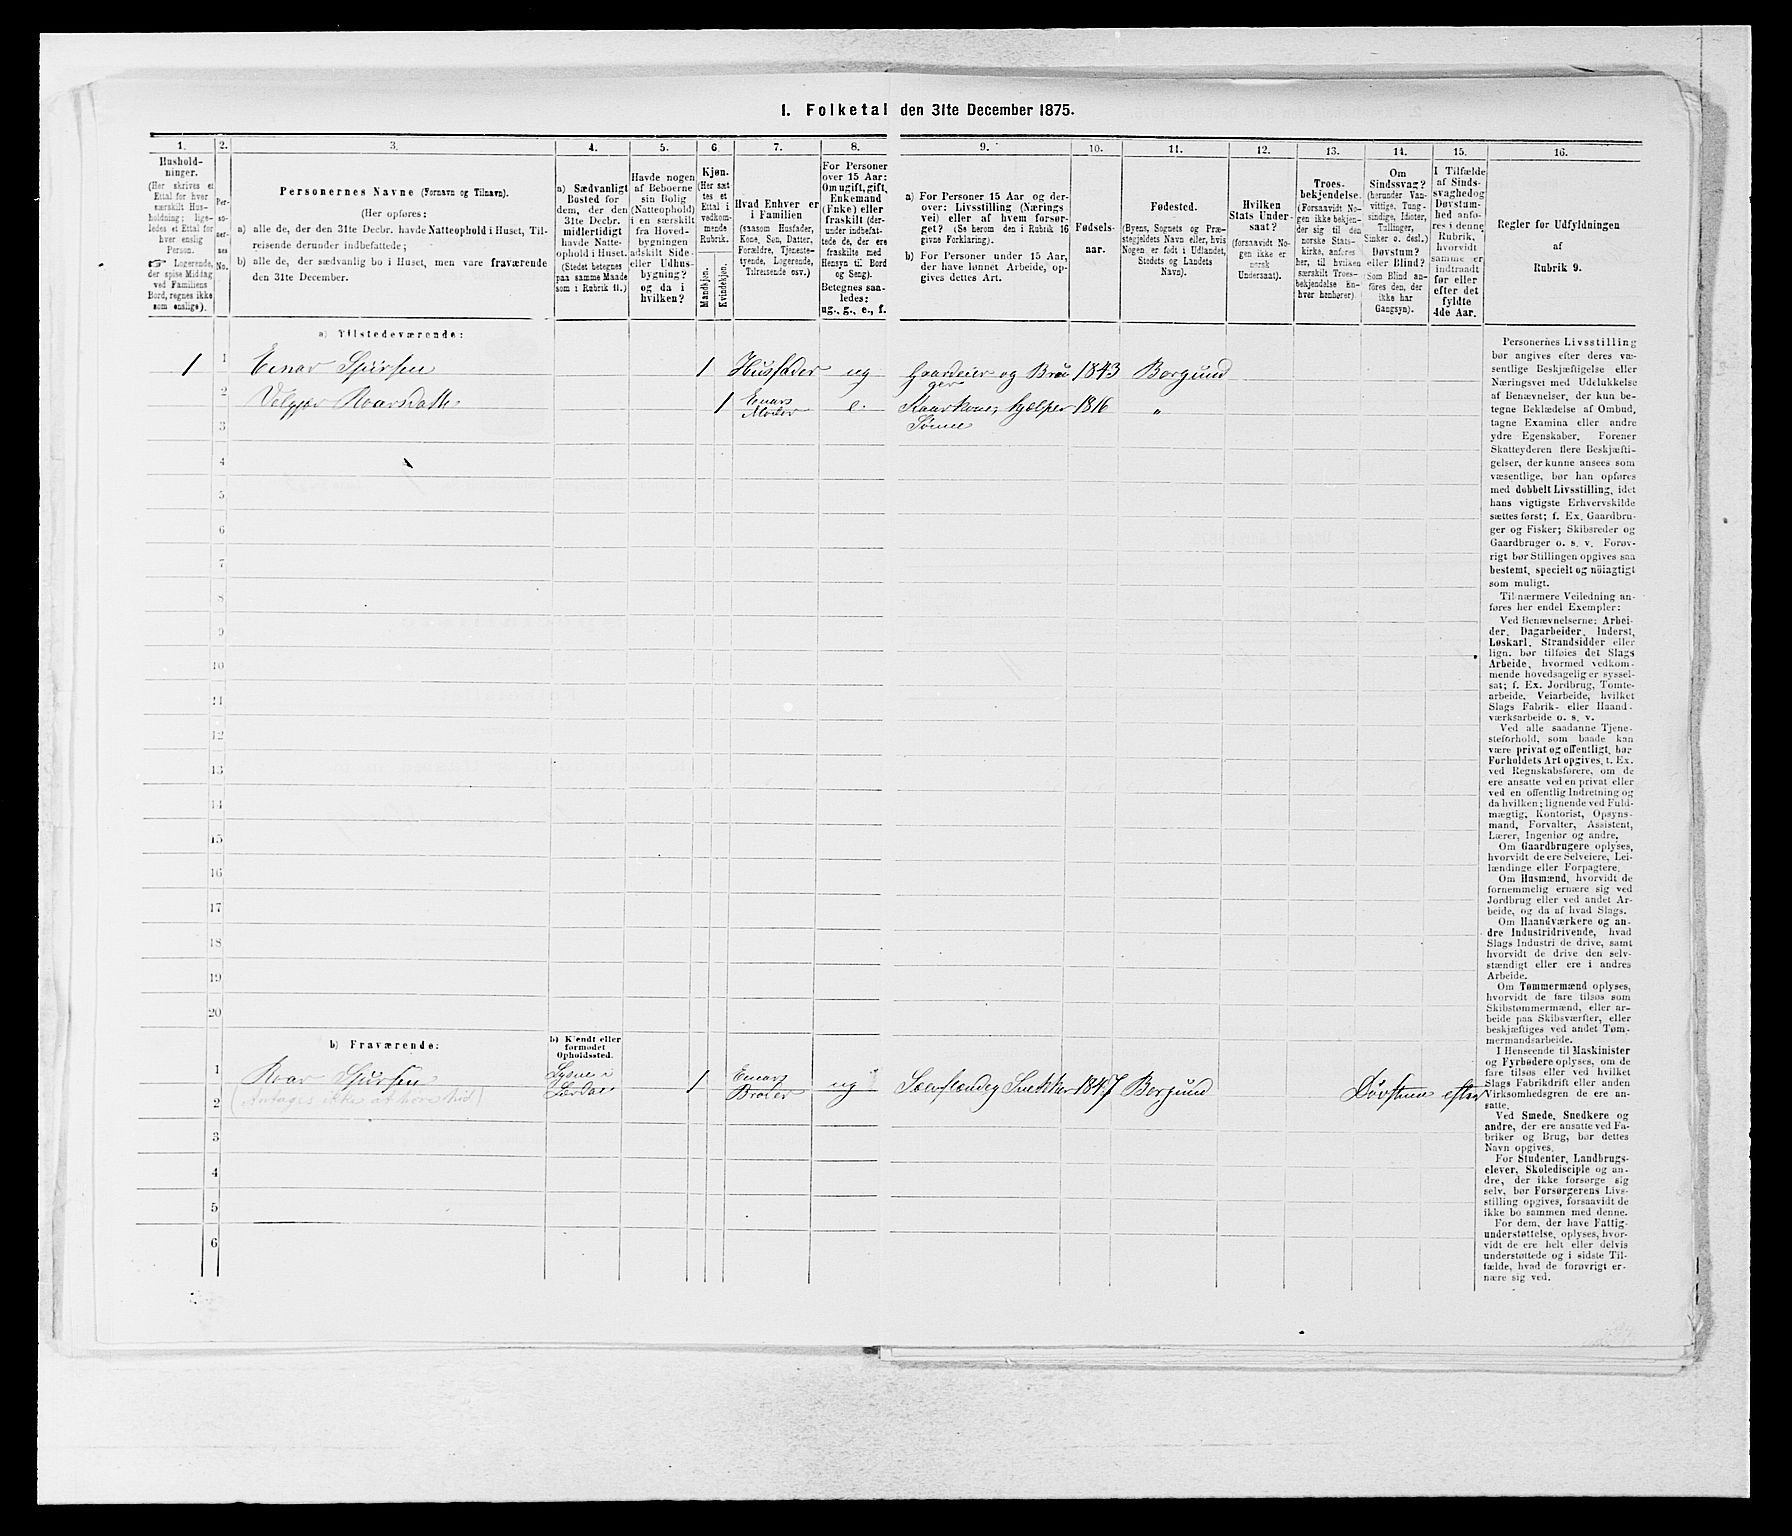 1. Folketal den 31te December 1875.
1.
Hushold-
ninger.
(Her skrives et
Ettal for hver
særskilt Hus-
holdning; lige-
ledes et Ettal for
hver enslig
Person.
☞ Logerende,
der spise Middag
ved Familiens
Bord, regnes ikke
som enslige).
2.
Per-
so-
ner-
nes
No.
3.
Personernes Navne (Fornavn og Tilnavn).
(Her opføres:
a) alle de, der den 31te Decbr. havde Natteophold i Huset, Til-
reisende derunder indbefattede;
b) alle de, der sædvanlig bo i Huset, men vare fraværende
den 31te December.
4.
a) Sædvanligt
Bosted for
dem, der den
31te Decbr.
midlertidigt
havde Natte-
ophold i Huset.
(Stedet betegnes
paa samme Maade
som i Rubrik 11.)
5.
Havde nogen
af Beboerne
sin Bolig
(Natteophold)
i en særskilt
fra Hoved-
bygningen
adskilt Side-
eller Udhus-
bygning?
og da i
hvilken?
6.
Kjøn.
(Her sæt-
tes et
Ettal i
vedkom-
mende
Rubrik.
Mandkjøn.
Kvindekjøn.
7.
Hvad Enhver er
i Familien
(saasom Husfader,
Kone, Søn, Datter,
Forældre, Tjeneste-
tyende, Logerende,
Tilreisende osv.)
8.
For Personer
over 15 Aar:
Om ugift, gift,
Enkemand
(Enke) eller
fraskilt (der-
under indbefat-
tede de, der ere
fraskilte med
Hensyn til Bord
og Seng).
Betegnes saa-
ledes:
ug., g., e., f.
9.
a) For Personer 15 Aar og der-
over: Livsstilling (Nærings
vei) eller af hvem forsør-
get? (Se herom den i Rubrik 16
givne Forklaring).
b) For Personer under 15 Aar,
der have lønnet Arbeide, op-
gives dettes Art.
10.
Fødsels-
aar.
11.
Fødested.
(Byens, Sognets og Præ-
stegjeldets Navn eller, hvis
Nogen er født i Udlandet,
Stedets og Landets
Navn).
12.
Hvilken
Stats Under-
saat?
(forsaavidt No-
gen ikke er
norsk
Undersaat).
13.
Troes-
bekjendelse.
(Forsaavidt No-
gen ikke bekjen-
der sig til den
norske Stats-
kirke, anføres
her, til hvilken
særskilt Troes-
bekjendelse En-
hver henhører).
14.
Om
Sindssvag?
(herunder Van-
vittige, Tung-
sindige, Idioter,
Tullinger,
Sinker o. desl.)
Døvstum?
eller Blind?
Som Blind an-
føres den, der
ikke har
Gangsyn).
15.
I Tilfælde
af Sinds-
svaghed og
Døvstum-
hed anfø-
res i denne
Rubrik,
hvorvidt
samme er
indtraadt
før eller
efter det
fyldte
4de Aar.
16.
Regler for Udfyldningen
af
Rubrik 9.
a) Tilstedeværende:
1 1 Einar Sjursen 1 Husfader ug Gaardeier og Bru- 1843 Borgund
ger
2 Roarsdatter 1 Einars e. hjælper 1816 "
Moder
3
4
5
6
7
8
9
10
11
12
13
14
15
16
17
18
19
20
b) Fraværende:
b) Kjendt eller
formodet
Opholdssted.
1 Roar Sjursen Lysne i 1 Einars ug Snekker 1847 Borgund Døvstum efter
Lærdal Broder
2 (Antages ikke at høre hid)
3
4
5
6
Personernes Livsstilling
bør angives efter deres væ-
sentlige Beskjæftigelse eller
Næringsvei med Udelukkelse
af Benævnelser, der kun be-
tegne Beklædelse af Ombud,
tagne Examina eller andre
ydre Egenskaber. Forener
Skatteyderen flere Beskjæfti-
gelser, der kunne ansees som
væsentlige, bør han opføres
med dobbelt Livsstilling, idet
hans vigtigste Erhvervskilde
sættes først; f. Ex. Gaardbru-
ger og Fisker; Skibsreder og
Gaardbruger o. s. v. Forøv-
rigt bør Stillingen opgives saa
bestemt, specielt og nöiagtigt
som muligt.
Til nærmere Veiledning an-
føres her endel Exempler:
Ved Benævnelserne: Arbei-
der, Dagarbeider, Inderst,
Løskarl, Strandsidder eller
lign. bør tilføies det Slags
Arbeide, hvormed vedkom-
mende hovedsagelig er syssel-
sat; f. Ex. Jordbrug, Tomte-
arbeide, Veiarbeide, hvilket
Slags Fabrik- eller Haand-
værksarbeide o. s. v.
Ved alle saadanne Tjene-
steforhold, som baade kan
være privat og offentligt, bør
Forholdets Art opgives, t. Ex.
ved Regnskabsførere, om de
ere ansatte ved en privat eller
ved en offentlig Indretning og
da hvilken; lignende ved Fuld-
mægtig, Kontorist, Opsyns-
mand, Forvalter, Assistent,
Lærer, Ingeniør og andre.
Om Gaardbrugere oplyses,
hvorvidt de ere Selveiere, Lei-
lændinge eller Forpagtere.
Om Husmænd, hvorvidt de
fornemmelig ernære sig ved
Jordbrug eller ved andet Ar-
beide, og da af hvad Slags.
Om Haandværkere og an-
dre Industridrivende, hvad
Slags Industri de drive, samt
hvorvidt de drive den selv-
stændigt eller ere i andres
Arbeide.
Om Tømmermænd oplyses,
hvorvidt de fare tilsøs som
Skibstømmermænd, eller ar-
beide paa Skibsværfter, eller
beskjæftiges ved andet Tøm-
mermandsarbeide.
I Henseende til Maskinister
og Fyrbødere oplyses, om de
fare tilsøs eller ved hvilket
Slags Fabrikdrift eller anden
Virksomhedsgren de ere an-
satte.
Ved Smede, Snedkere og
andre, der ere ansatte ved Fa-
briker og Brug, bør dettes
Navn opgives.
For Studenter, Landbrugs-
elever, Skoledisciple og an-
dre, der ikke forsørge sig
selv, bør Forsørgerens Livs-
stilling opgives, forsaavidt de
ikke bo sammen med denne.
For dem, der have Fattig-
understøttelse, oplyses, hvor-
vidt de ere helt eller delvis
understøttede og i sidste Til-
fælde, hvad de forøvrigt er-
nære sig ved.